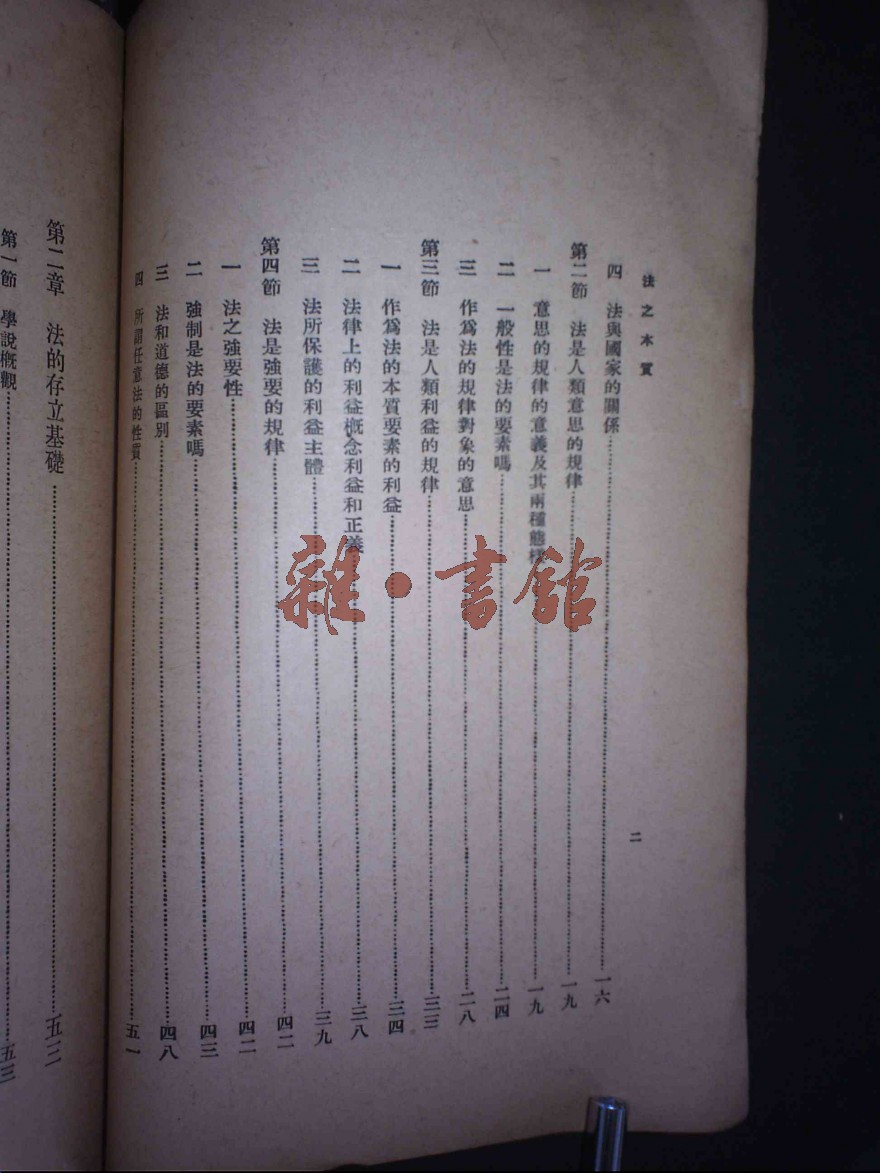 法之本質
二
四 法與國家的關係……一六
第二節 法是人類意思的規律……一九
一 意思的規律的意義及其兩種態樣……一九
二 一般性是法的要素嗎……二四
三 作爲法的規律對象的意思……二八
第三節 法是人類利益的規律……三三
一 作爲法的本質要素的利益……三四
二 法律上的利益概念利益和正義……三八
三 法所保護的利益主體……三九
第四節 法是強要的規律……四二
一 法之強要性……四二
二 強制是法的要素嗎……四三
三 法和道德的區別……四八
四 所謂任意法的性質……五一
第二章 法的存立基礎……五三
第一節 學說概觀……五三
雜·書館